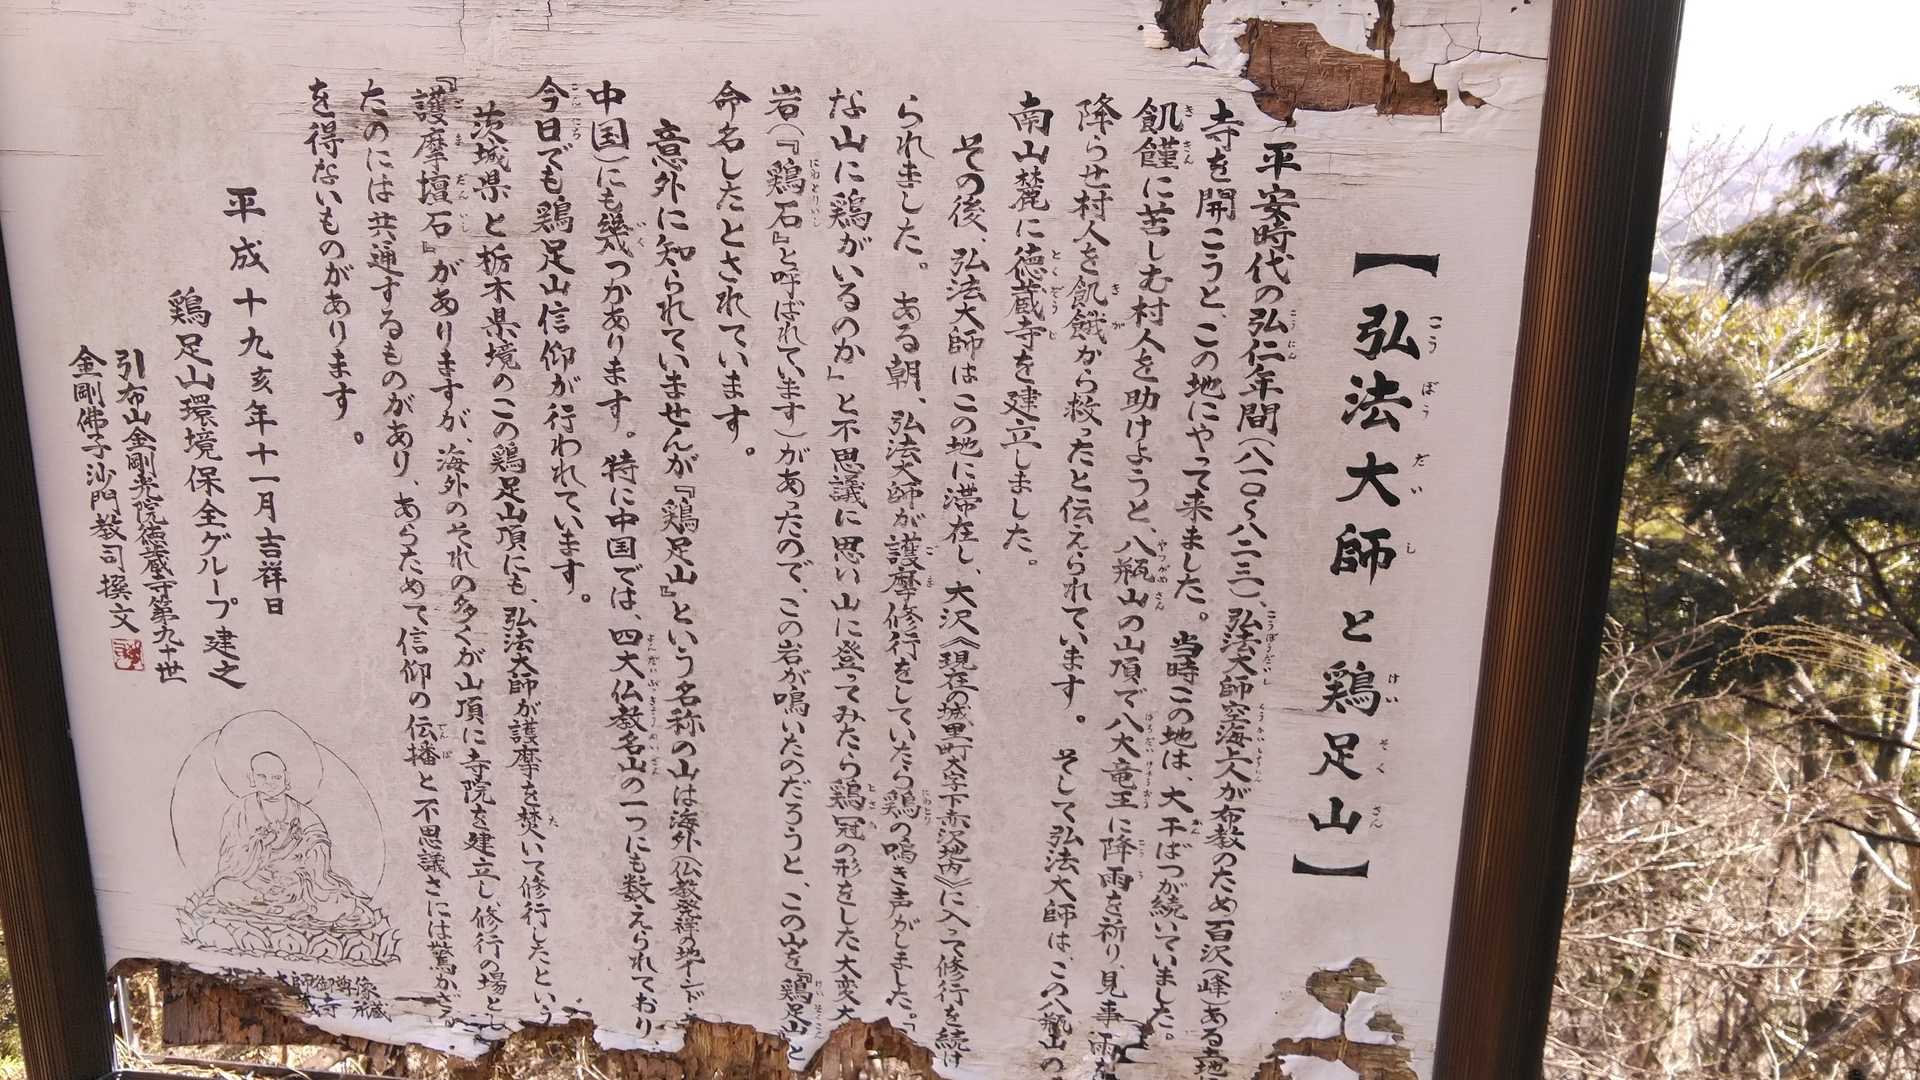 【弘法大師と鶏足山】
平安時代の弘仁年間(八一〇〜八二三)、弘法大師空海上人が布教のため百沢(峰)ある霊地に
寺を開こうと、この地にやって来ました。当時この地は、大干ばつが続いていました。
飢饉に苦しむ村人を助けようと、八瓶山の山頂で八大竜王に降雨を祈り、見事雨を
降らせ村人を飢餓から救ったと伝えられています。そして弘法大師は、この八瓶山の
南山麓に徳蔵寺を建立しました。
その後、弘法大師はこの地に滞在し、大沢《現在の城里町大字下赤沢地内》に入って修行を続け
られました。ある朝、弘法大師が護摩修行をしていたら鶏の鳴き声がしました。「
な山に鶏がいるのか」と不思議に思い山に登ってみたら鶏冠の形をした大変大
岩(『鶏石』と呼ばれています)があったので、この岩が鳴いたのだろうと、この山を『鶏足山』と
命名したとされています。
意外に知られていませんが『鶏足山』という名称の山は海外(仏教発祥の地インド、
中国)にも幾つかあります。特に中国では、四大仏教名山の一つにも数えられており、
今日でも鶏足山信仰が行われています。
茨城県と栃木県境のこの鶏足山頂にも、弘法大師が護摩を焚いて修行したという
『護摩壇石』がありますが、海外のそれの多くが山頂に寺院を建立し、修行の場とし
たのには共通するものがあり、あらためて信仰の伝播と不思議さには驚かざる
を得ないものがあります。
平成十九亥年十一月吉祥日
鶏足山環境保全グループ建之
引布山金剛光院徳蔵寺第九十世
金剛佛子沙門教司撰文
師御尊像
蔵寺所蔵